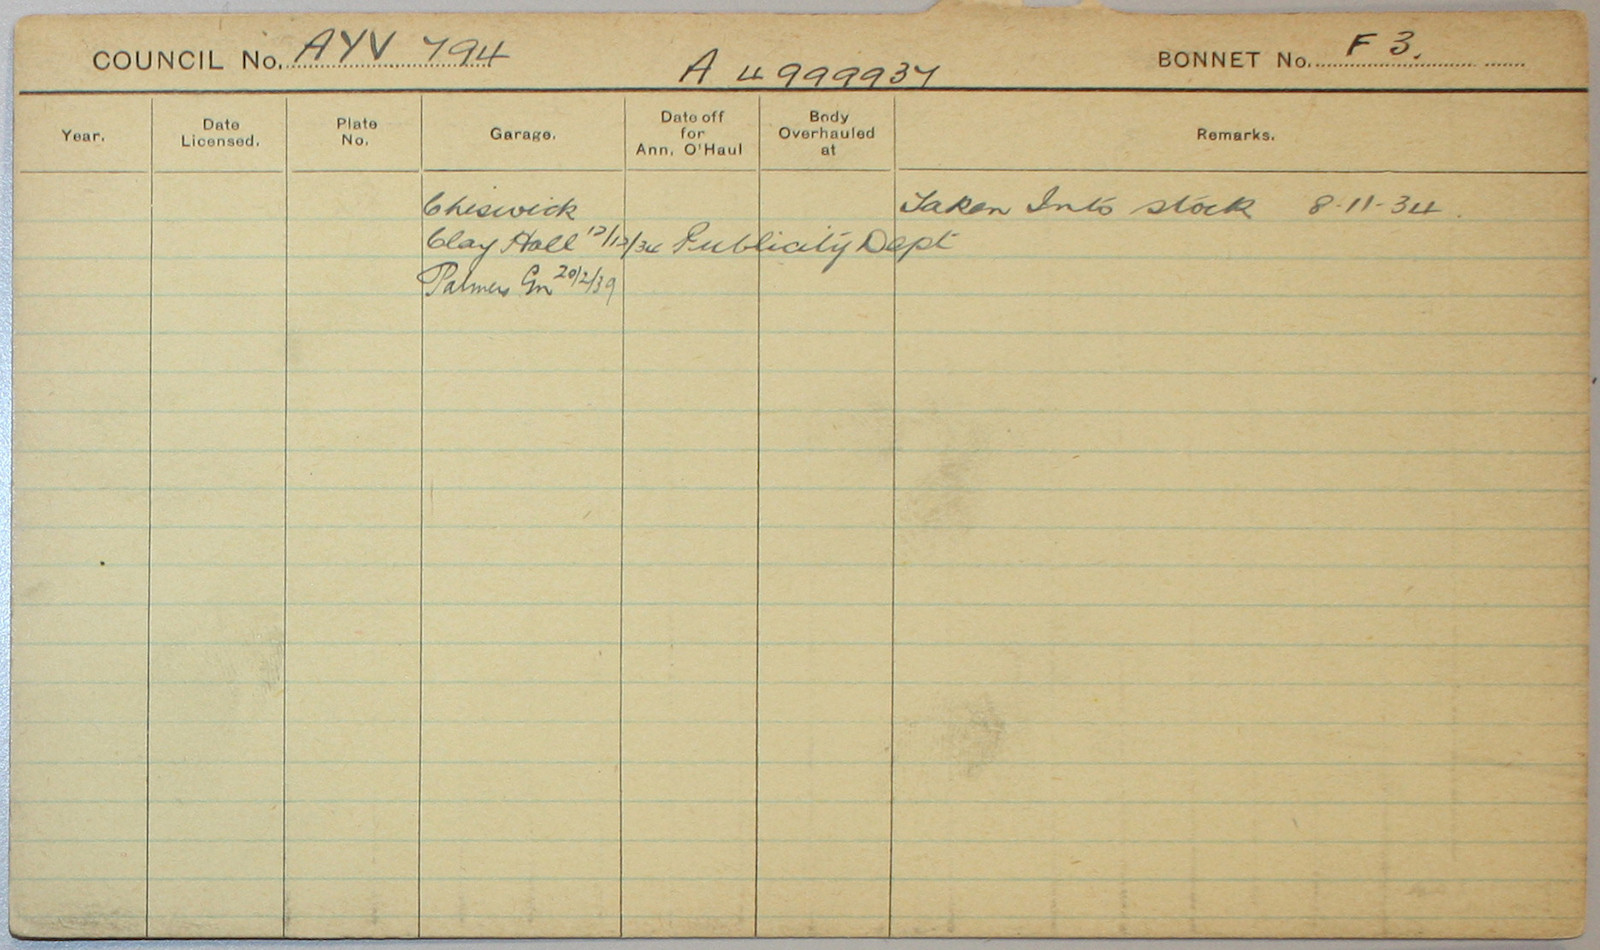 COUNCIL No. AYV 794
A 4999937
BONNET No. F 3.
Year.
Date Licensed.
Plate No.
Garage.
Date off for Ann. O'Haul
Body Overhauled at
Remarks.
Chiswick Taken Into stock 8-11-34.
Clay Hall 12/12/34 Publicity Dept
Palmers Gn 20/2/39